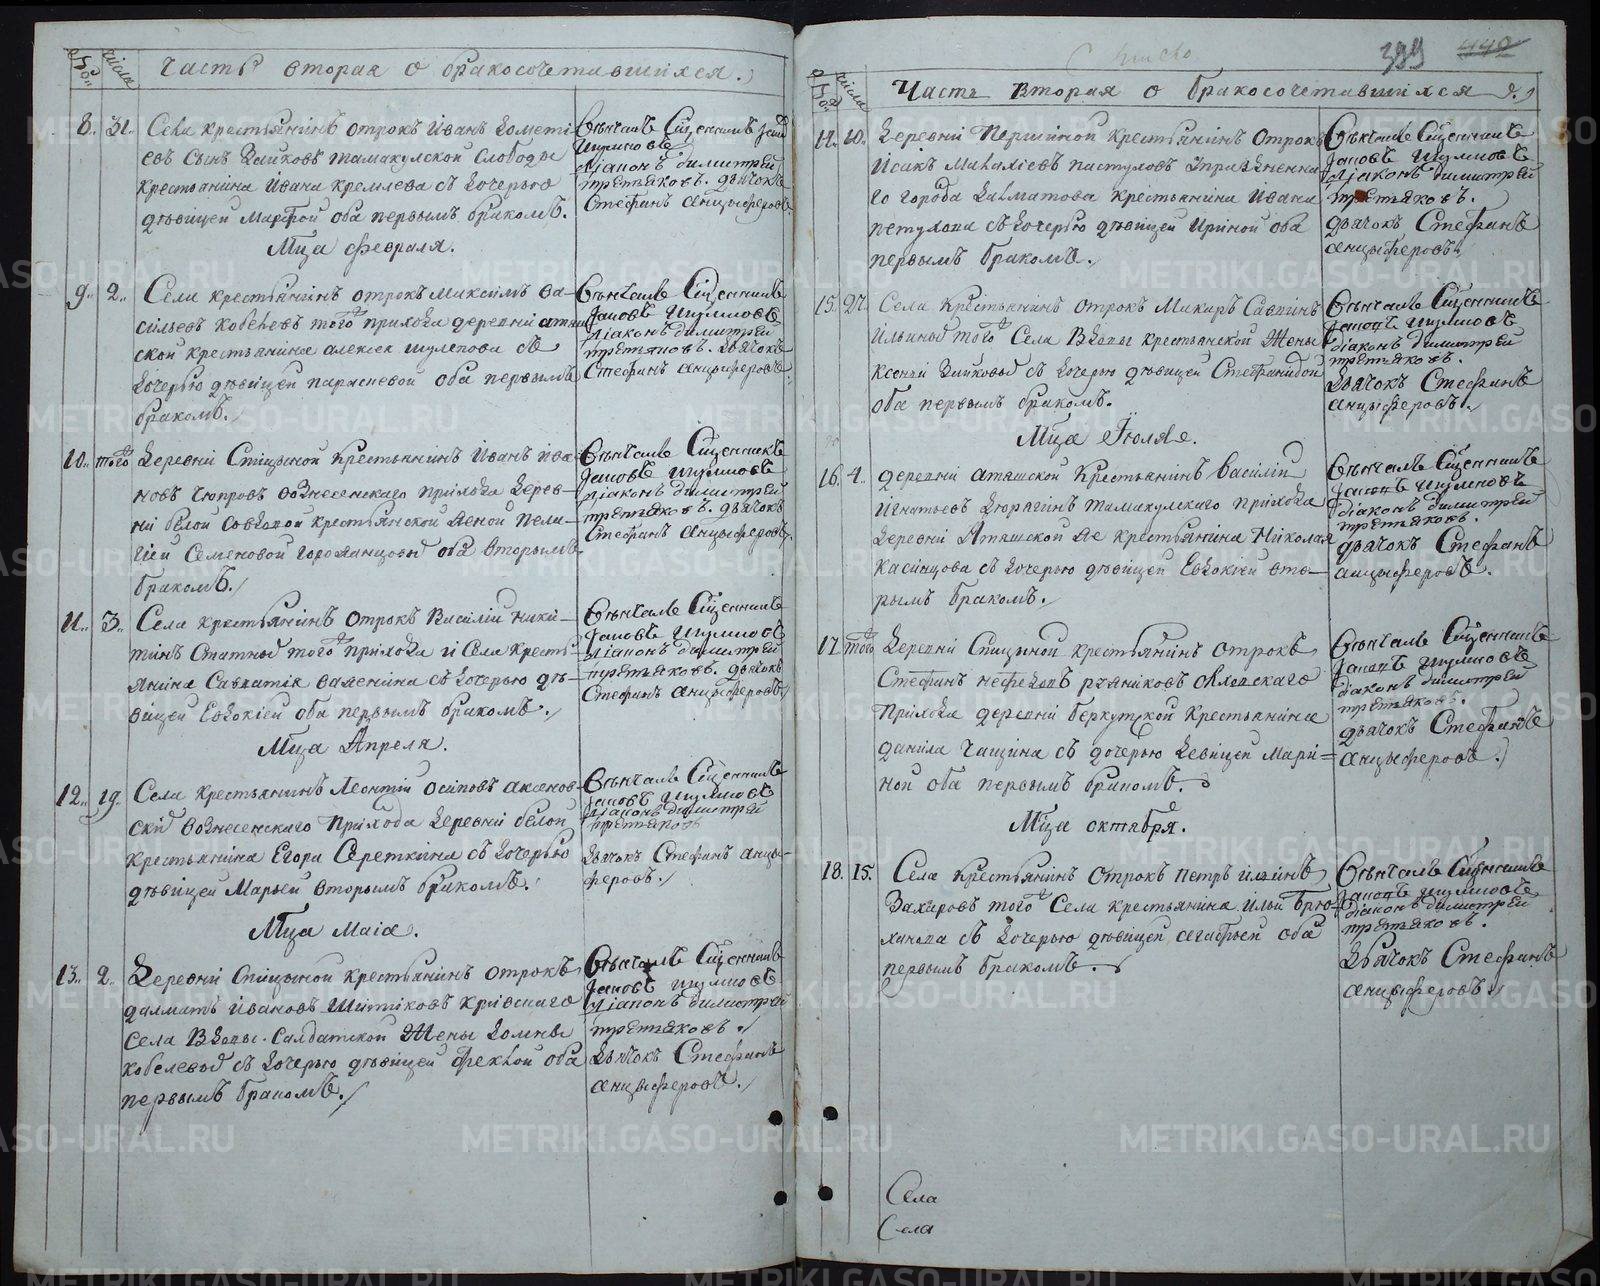 Часть вторая о бракосочетавшихся.
8. 31. Села крестьянинъ отрокъ Иванъ Дометі-
евъ сынъ Зайковъ тамакулской слободы
крестьянина Ивана Кремлева съ дочерью
дѣвицей Марфой оба первымъ бракомъ.
Вѣнчалъ Священникъ
Іаковъ Шумиловъ
Діаконъ Димитрей
третьяковъ. дьячокъ
Стефанъ анцыферовъ.
Мца февраля.
9. 2. Села крестьянинъ отрокъ Максимъ ва-
сильевъ Кобелевъ того прихода деревни аташ
ской крестьянина алексея шулепова съ
дочерью дѣвицей парасковей оба первымъ
бракомъ.
Вѣнчалъ Священникъ
Іаковъ Шумиловъ
діаконъ Димитрей
третьяковъ. дьячокъ
Стефанъ анцыферовъ.
10. того деревни Спицыной крестьянинъ Иванъ ива-
новъ Чюпровъ вознесенскаго прихода дерев-
ни белой крестьянской женой пела-
гіей Семеновой оба вторымъ
бракомъ.
Вѣнчалъ Священникъ
Іаковъ Шумиловъ
діаконъ Димитрей
третьяковъ. дьячокъ
Стефанъ анцыферовъ.
11. 3. Села крестьянинъ отрокъ Василій ники-
тинъ того прихода и Села кресть-
янина Савватія важенина съ дочерью дѣ-
вицей Евдокіей оба первымъ бракомъ.
Вѣнчалъ Священникъ
Іаковъ Шумиловъ
діаконъ Димитрей
третьяковъ. дьячокъ
Стефанъ анцыферовъ.
Мца Апреля.
12. 19. Села крестьянинъ Леонтій осиповъ аксенов-
скій вознесенскаго прихода деревни белой
крестьянина Егора Середкина съ дочерью
дѣвицей Марьей вторымъ бракомъ.
Вѣнчалъ Священникъ
Іаковъ Шумиловъ
діаконъ Димитрей
третьяковъ
дьячокъ Стефанъ анцы-
феровъ.
Мца Маія.
13. 2. Деревни Спицыной крестьянинъ отрокъ
далматъ ивановъ Шитиковъ кривскаго
села вдовы Салдатской жены домны
кобелевой съ дочерью дѣвицей феклой оба
первымъ бракомъ.
Вѣнчалъ Священникъ
Іаковъ Шумиловъ
діаконъ Димитрей
третьяковъ.
дьячокъ Стефанъ
анцыферовъ.
399 440
Часть вторая о бракосочетавшихся.
14. 10. деревни Першиной крестьянинъ отрокъ
Исакъ Михаілевъ пастуховъ упраздненна
го города далматова крестьянина Ивана
петухова съ дочерью дѣвицей ириной оба
первымъ бракомъ.
Вѣнчалъ Священникъ
Іаковъ Шумиловъ
діаконъ Димитрей
третьяковъ.
дьячокъ Стефанъ
анцыферовъ.
15. 27. Села крестьянинъ отрокъ Макаръ Саввинъ
того Села вдовы крестьянской жены
Ксеньи Зайковой съ дочерью дѣвицей Стефанидой
оба первымъ бракомъ.
Вѣнчалъ Священникъ
Іаковъ Шумиловъ
діаконъ Димитрей
третьяковъ.
дьячокъ Стефанъ
анцыферовъ.
Мца Іюля.
16. 4. деревни аташской крестьянинъ Василій
игнатьевъ дюрягинъ тамакулскаго прихода
деревни Аташской же крестьянина Николая
Касинцова съ дочерью дѣвицей Евдокіей вто-
рымъ бракомъ.
Вѣнчалъ Священникъ
Іаковъ Шумиловъ
діаконъ Димитрей
третьяковъ.
дьячокъ Стефанъ
анцыферовъ.
17. того деревни Спицыной крестьянинъ отрокъ
Стефанъ нефедовъ
прихода деревни беркутской крестьянина
данила Чащина съ дочерью девицей Мари-
ной оба первымъ бракомъ.
Вѣнчалъ Священникъ
Іаковъ Шумиловъ
діаконъ Димитрей
третьяковъ.
дьячокъ Стефанъ
анцыферовъ.
Мца октября.
18. 15. Села крестьянинъ отрокъ петръ ильинъ
Захаровъ того Села крестьянина ильи брю-
ханова съ дочерью дѣвицей агафьей оба
первымъ бракомъ.
Вѣнчалъ Священникъ
Іаковъ Шумиловъ
діаконъ Димитрей
третьяковъ.
дьячокъ Стефанъ
анцыферовъ.
Села
Села
METRIKI.GASO-URAL.RU